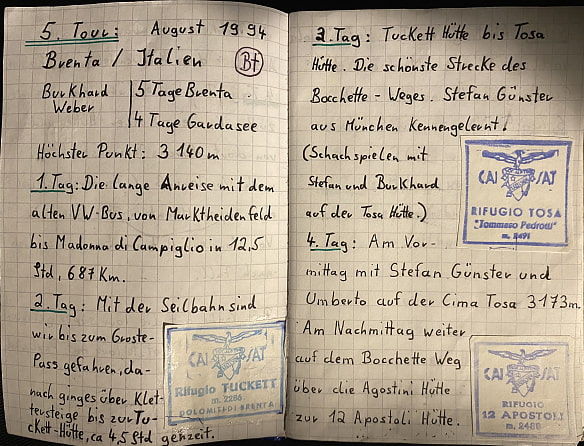 5. Tour: August 1994
Brenta / Italien Bf
Burkhard Weber
5 Tage Brenta.
4 Tage Gardasee
Höchster Punkt: 3 140 m
1. Tag: Die lange Anreise mit dem
alten VW-Bus, von Marktheidenfeld
bis Madonna di Campiglio in 12,5
Std, 687 Km.
2. Tag: Mit der Seilbahn sind
wir bis zum Groste-
Pass gefahren, da-
nach ging es über Klet-
tersteige bis zur Tu-
ckett-Hütte, ca 4,5 Std gehzeit.
CAI SAT
Rifugio TUCKETT
m. 2268
DOLOMITI DI BRENTA
3. Tag: Tuckett Hütte bis Tosa
Hütte. Die schönste Strecke des
Bocchette - Weges. Stefan Günster
aus München Kennengelernt!
(Schachspielen mit
Stefan und Burkhard
auf der Tosa Hütte.)
CAI SAT
RIFUGIO TOSA
"Tommaso Pedrotti"
m. 2491
4. Tag: Am Vor-
mittag mit Stefan Günster und
Umberto auf der Cima Tosa 3173m.
Am Nachmittag weiter
auf dem Bocchette Weg
über die Agostini Hütte
zur 12 Apostoli Hütte.
CAI SAT
RIFUGIO
12 APOSTOLI
m. 2488